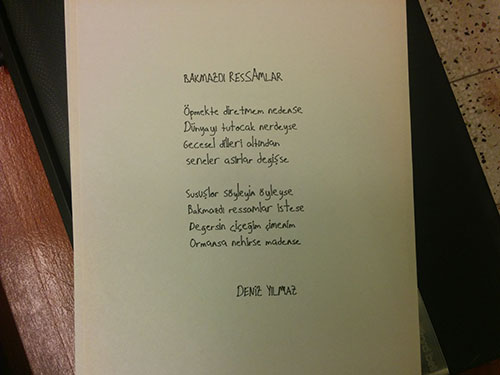 BAKMAZDI RESSAMLAR
Öpmekte diretmem nedense
Dünyayı tutacak nerdeyse
Gecesel dilleri altından
seneler asırlar değişse
Susuşlar söyleyin öyleyse
Bakmazdı ressamlar istese
Değersin çiçeğim çimenim
Ormansa nehirse madense
DENİZ YILMAZ